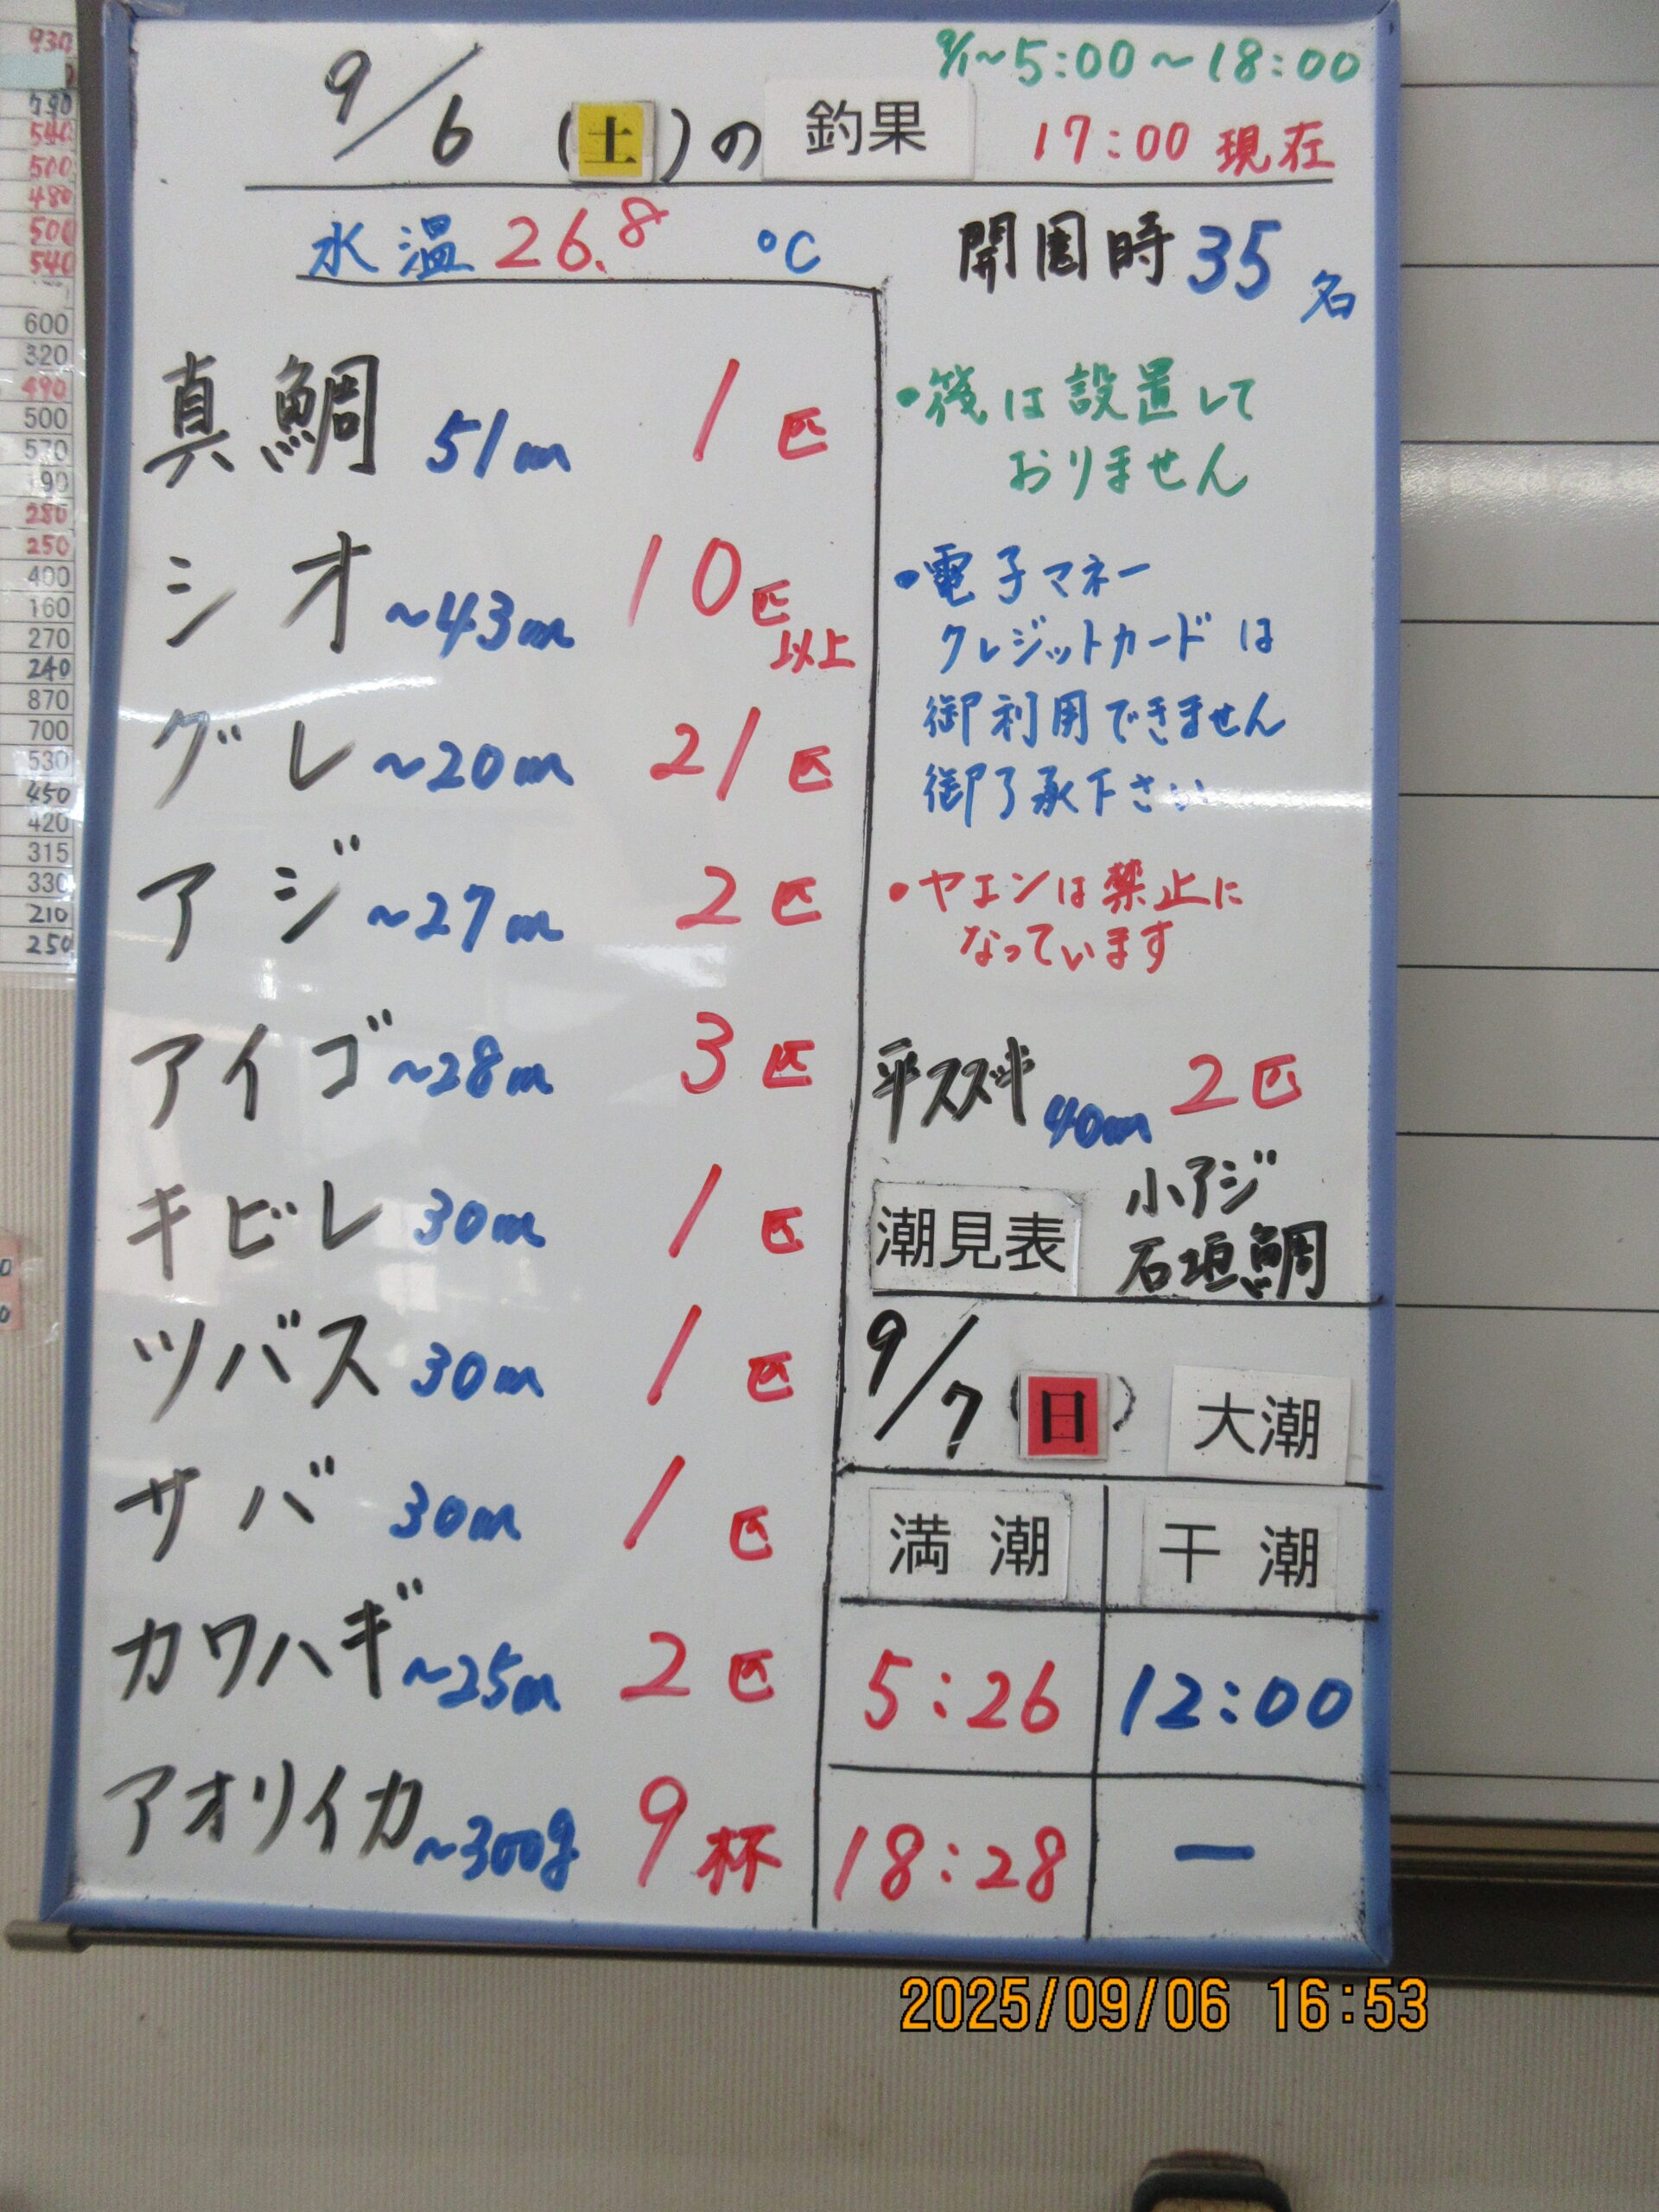 9/6 (土)の 釣果
9/1~5:00~18:00
17:00 現在
水温 26.8 ℃
開園時 35名
真鯛 51cm 1匹
シオ ~43cm 10匹以上
グレ ~20cm 21匹
アジ ~27cm 2匹
アイゴ ~28cm 3匹
キビレ 30cm 1匹
ツバス 30cm 1匹
サバ 30cm 1匹
カワハギ ~25cm 2匹
アオリイカ ~300g 9杯
・筏は設置して
おりません
・電子マネー
クレジットカードは
御利用できません
御了承下さい
・ヤエンは禁止に
なっています
平スズキ 40cm 2匹
小アジ
石垣鯛
潮見表
9/7 (日) 大潮
満潮 干潮
5:26 12:00
18:28 ー
930
790
540
500
480
500
540
600
320
490
500
570
90
280
250
400
160
270
240
870
700
530
450
420
315
330
210
250
2025/09/06 16:53